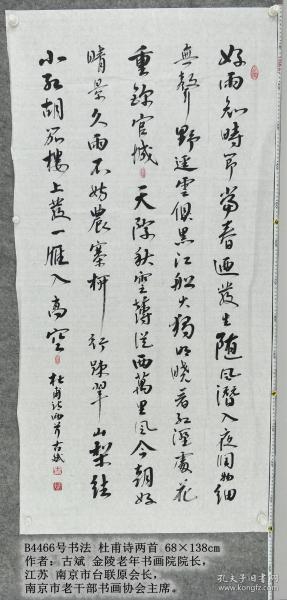 好雨知时节当春迺发生随风潜入夜润物细
無声野迳雲俱黑江船火獨明晓看红湿處花
重錦官城 天際秋雲薄从西萬里風今朝好
晴景久雨不妨農塞柳行疎翠山梨结
小红胡笳樓上发一雁入高空
杜甫诗两首古斌
B4466号书法 杜甫诗两首 68×138cm
作者：古斌 金陵老年书画院院长，
江苏 南京市台联原会长，
南京市老干部书画协会主席。